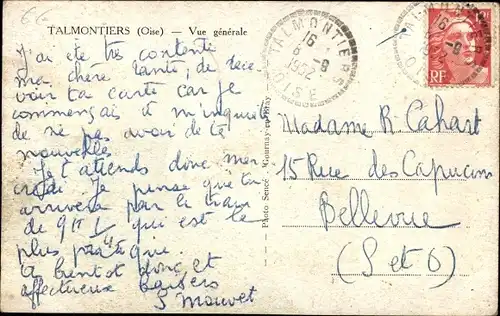 66
TALMONTIERS (Oise) — Vue générale
J'ai été très contente
ma chère tante, de
voir ta carte car je
commençais à m'inquié
de ne pas avoir de te
nouvelle
Je t'attends donc mer
credi je pense que tu
arrivera par le train
de 9H qui est le
plus pratique
à bientôt donc et
affectueux baisers
S Mouvet
Photo Sence Gournay-en-Bray
TALMONTIERS
16
8 -9
1952
OISE
RF
Madame R. Cahart
15 Rue des Capucins
Bellevue
(S et O)